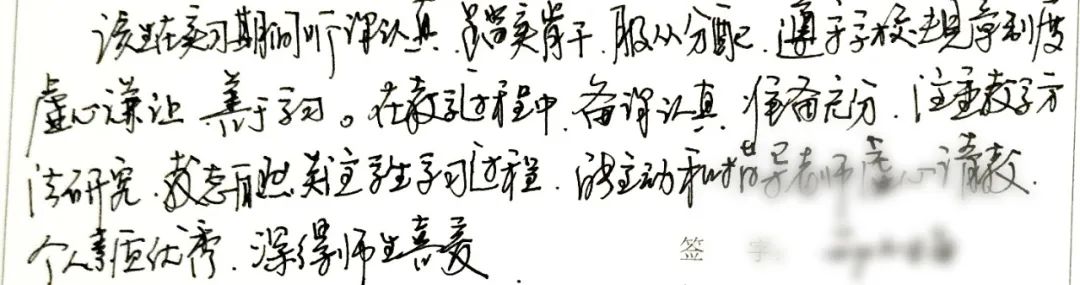 该生在实习期间听课认真,踏实肯干,服从分配,遵守学校规章制度
虚心谦让,善于学习。在教学过程中,备课认真,准备充分,注重教学方
法研究,教态自然,关注学生学习过程,能主动和指导老师虚心请教.
个人素质优秀,深得师生喜爱.
签 字